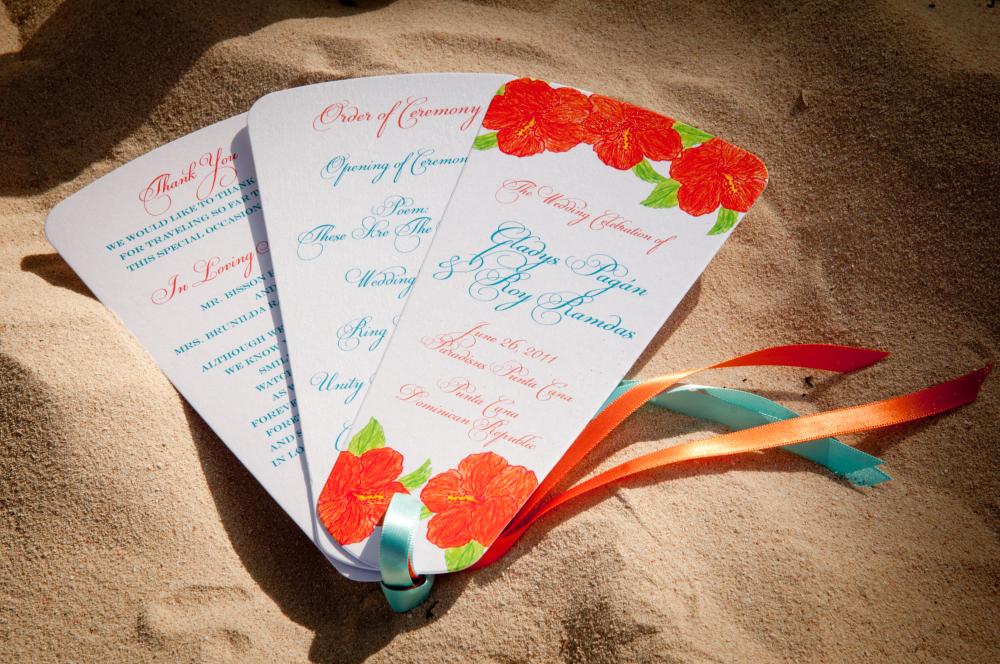 Thank You
WE WOULD LIKE TO THANK
FOR TRAVELING SO FAR T
THIS SPECIAL OCCASION
In Loving
MR. BISSON
AND
MRS. BRUNILDA R.
ALTHOUGH WE
WE KNOW
SMI
WATC
AS
FOREV
FORE
AND S
IN LO
Order of Ceremony
Opening of Ceremon
Poem:
These Are The
Wedding
Ring
Unity
The Wedding Celebration of
Gladys Pagán
& Roy Ramdas
June 26, 2011
Paradisus Punta Cana
Punta Cana
Dominican Republic